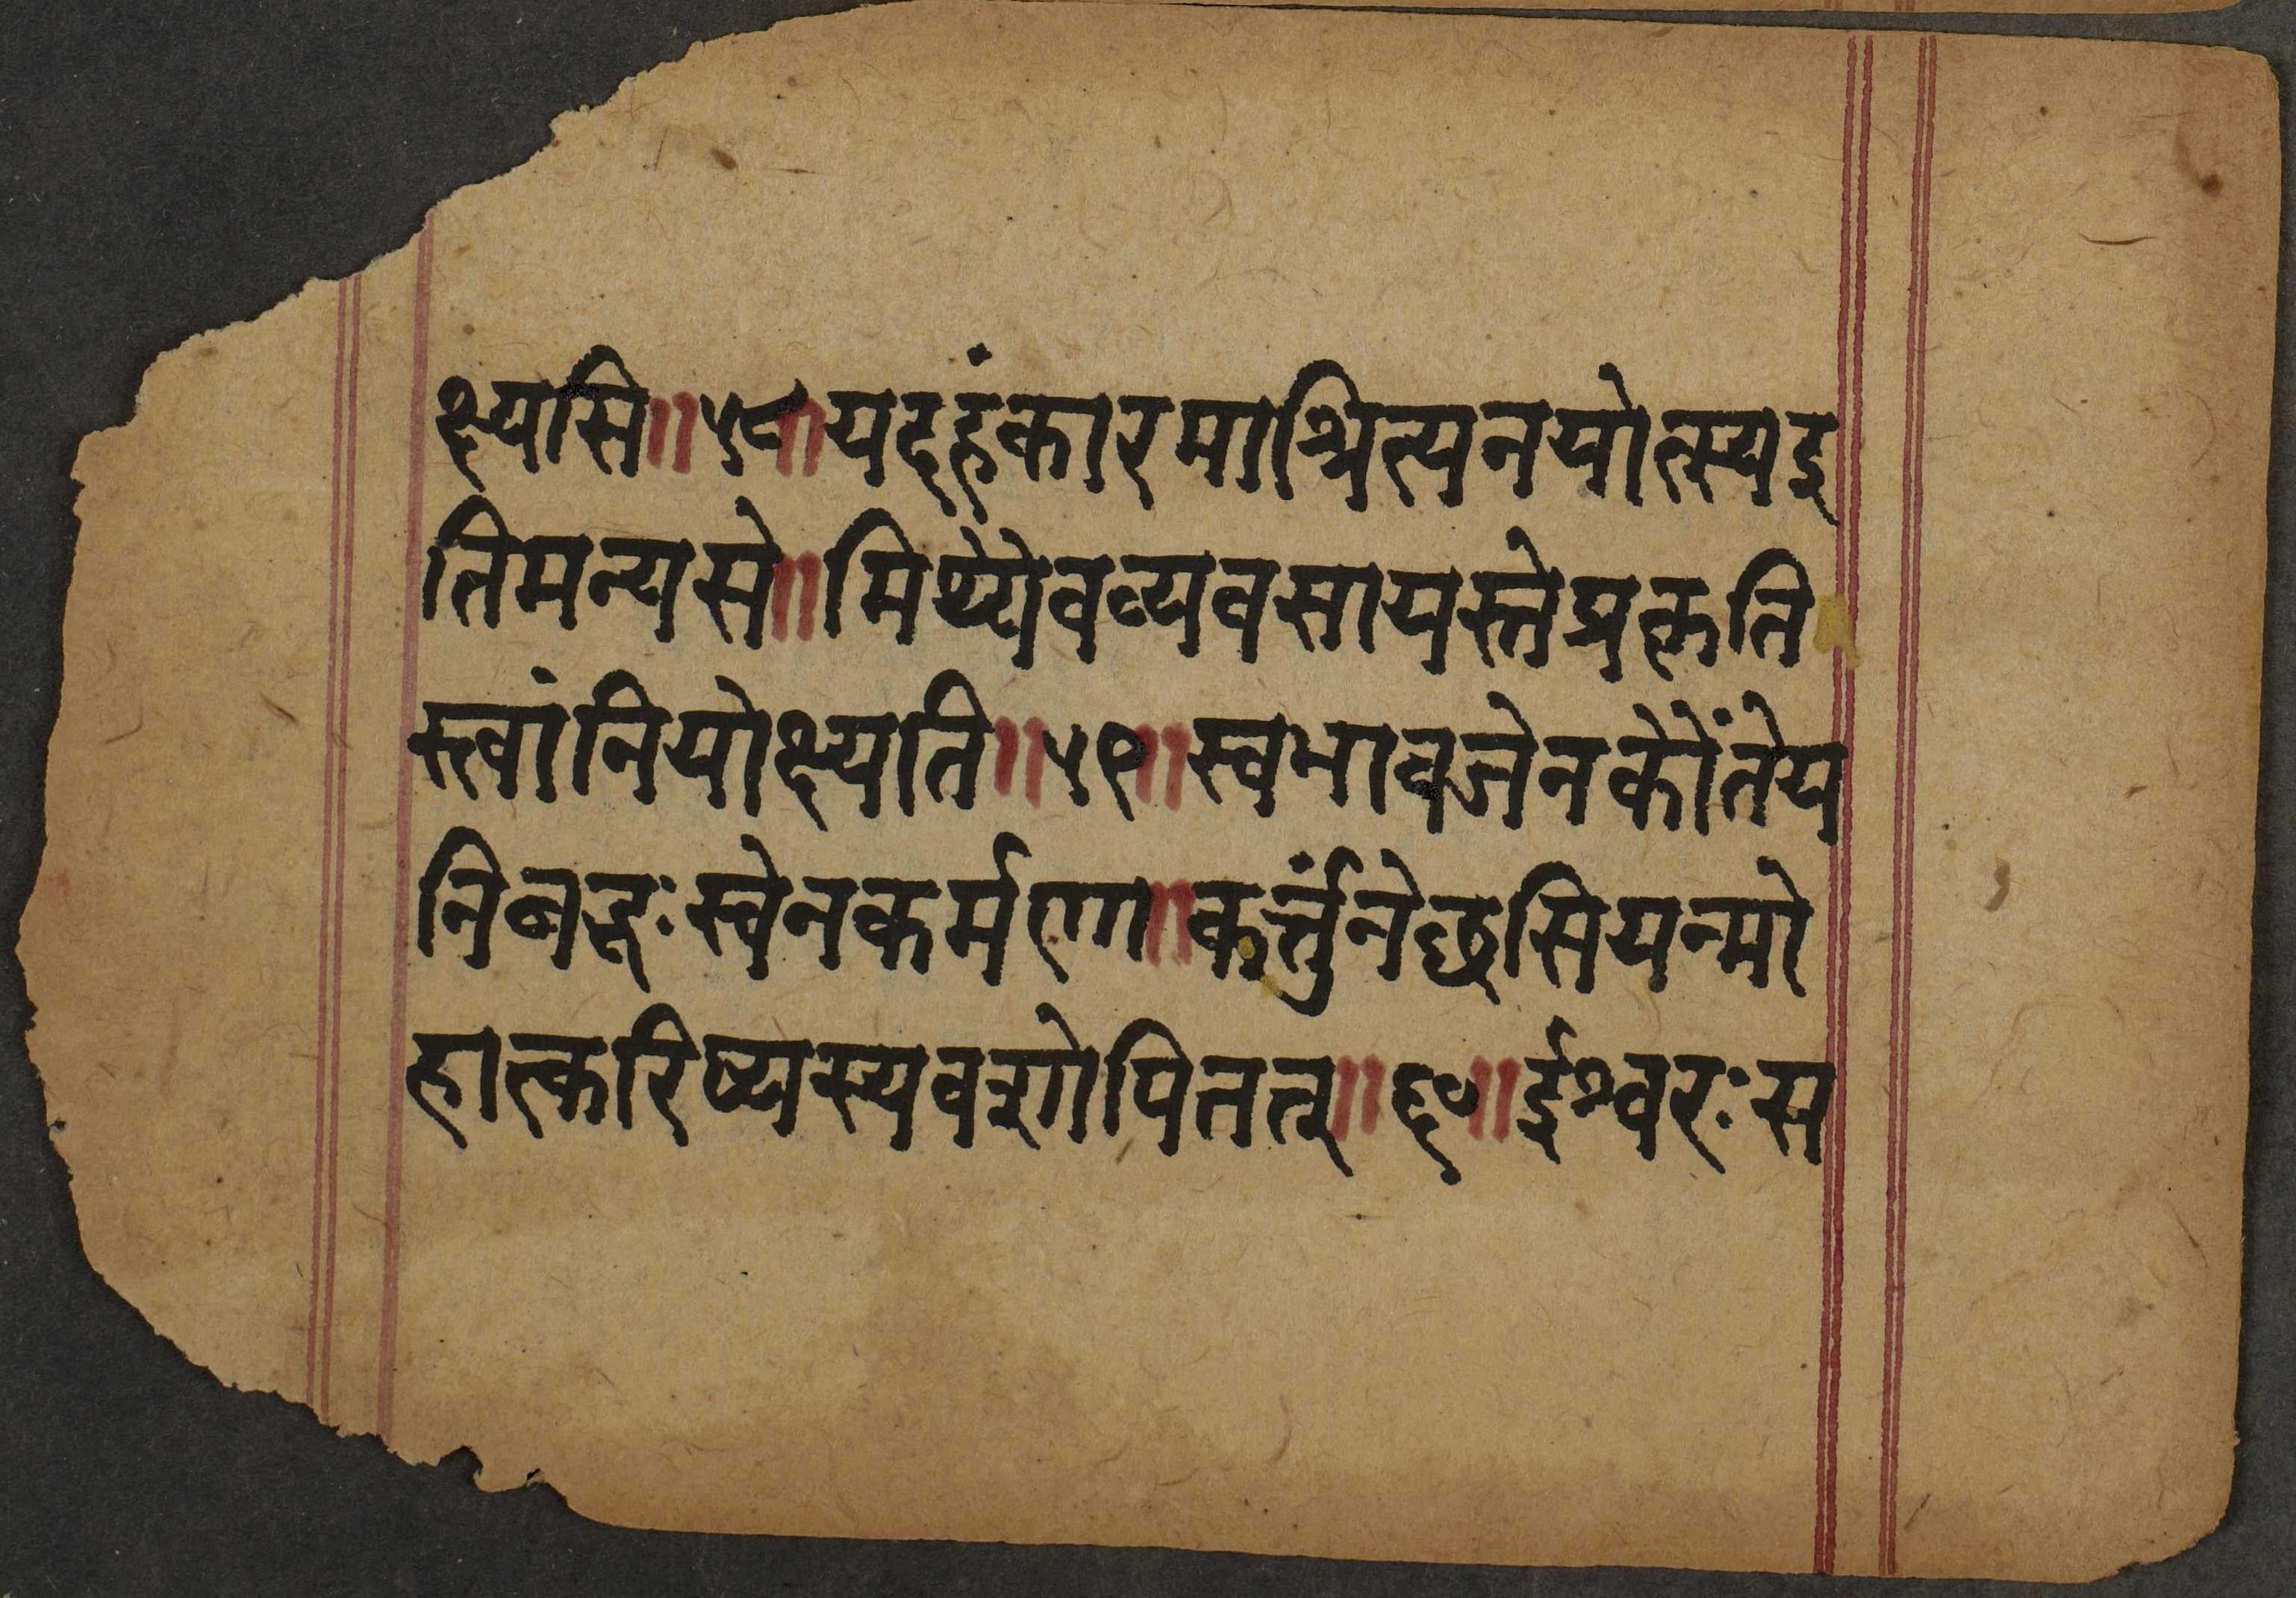 क्ष्यसि॥५८॥यदहंकारमाश्रित्यनयोत्स्यइ
तिमन्यसे॥मिथ्यैवव्यवसायस्तेप्रकृति
स्त्वांनियोक्ष्यति॥५९॥स्वभावजेनकौंतेय
निबद्धःस्वेनकर्मणा॥कर्त्तुंनेछसियन्मो
हात्करिष्यस्यवशोपितत्॥६०॥ईश्वरःस